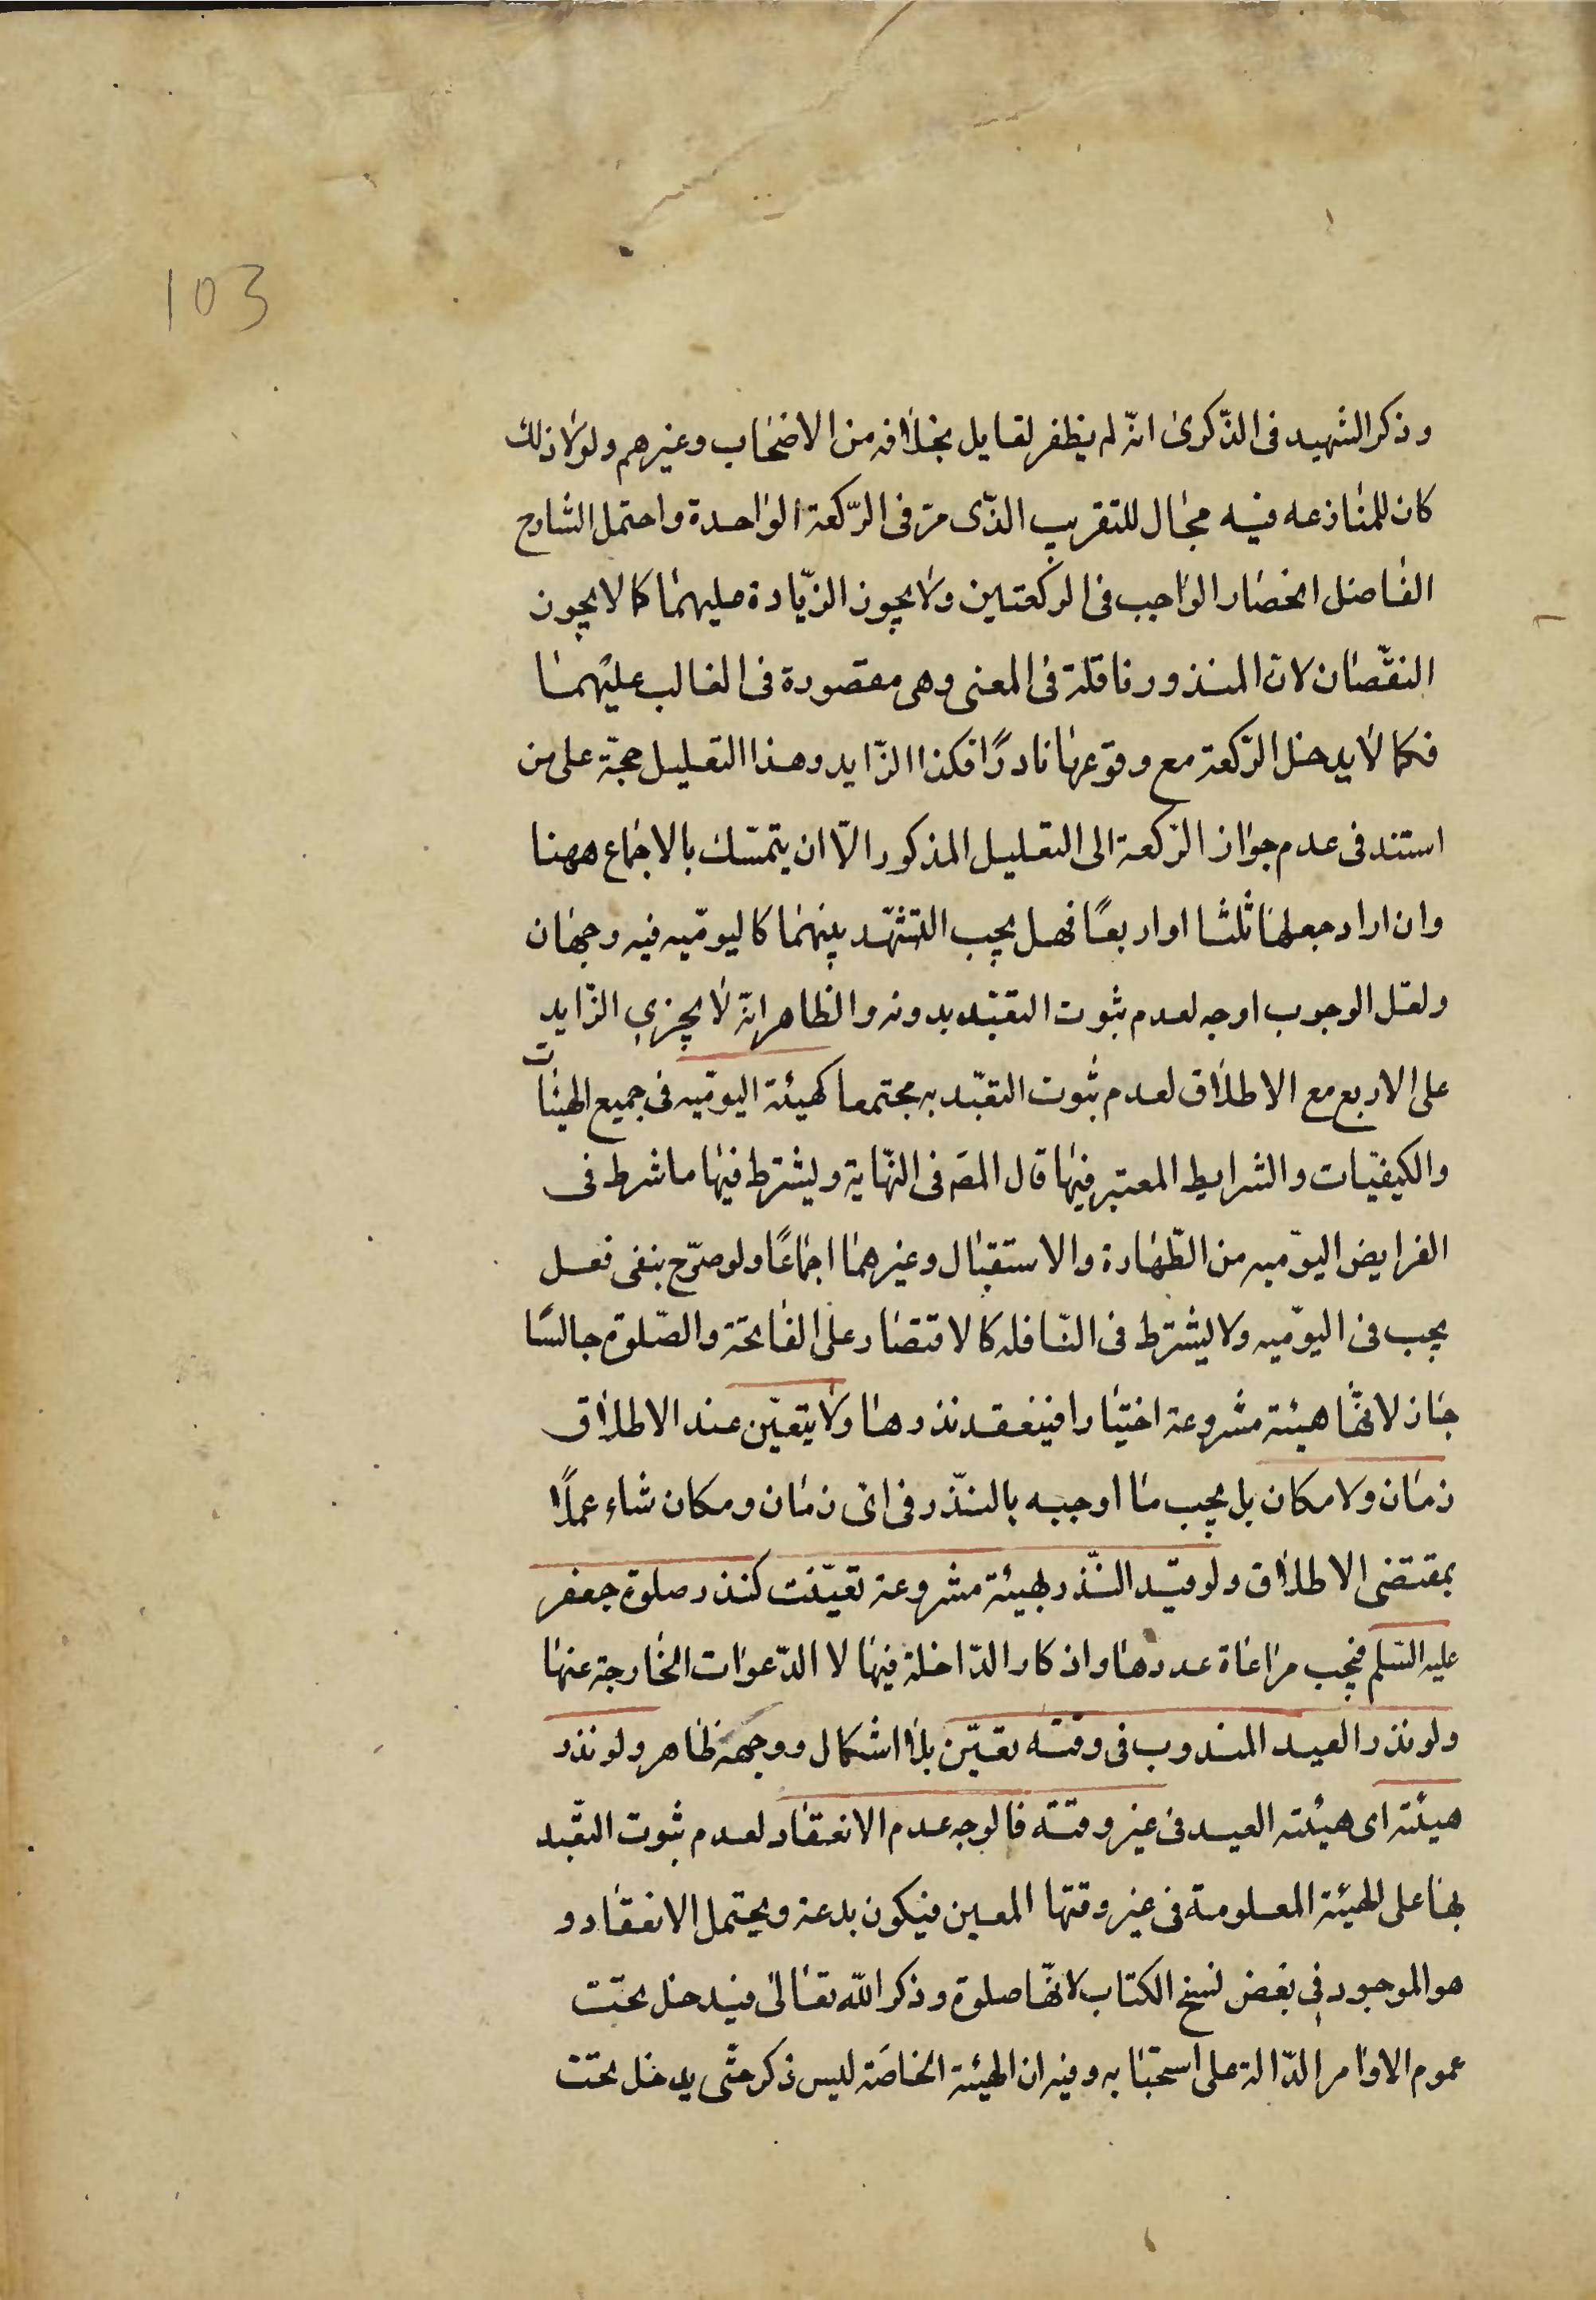 103
وذكر الشهيد فى الذّكرىٰ انّه لم يظفر لقايل بخلافه من الاصحٰاب وغيرهم ولولا ذلك
كان للمنٰازعه فيه مجٰال للتقريب الذّى مرّ فى الرّكعة الوٰاحدة واحتمل الشارح
الفٰاضل انحصٰار الوٰاجب فى الركعتين ولا يجوز الزّيٰادة عليهمٰا كما لا يجوز
النقصٰان لانّ المنذور نافلة فى المعنى وهى مقصورة فى الغالب عليهمٰا
فكما لا يدخل الرّكعة مع وقوعهٰا نادرًا فكذا الزّايد وهذا التعليل حجّة على من
استند فى عدم جوٰاز الرّكعة الى التعليل المذكور الّا ان يتمسّك بالاجمٰاع ههنا
وان اراد جعلهٰا ثلثا او اربعًا فهل يجب التشهّد بينهمٰا كاليوميّه فيه وجهٰان
ولعلّ الوجوب اوجه لعدم ثبوت التعبّد بدونه والظٰاهر انّه لا يجزى الزّايد
على الاربع مع الاطلاق لعدم ثبوت التعبّد به مجتمعا كهيئة اليوميّه فى جميع الهيئٰات
والكيفيّات والشرايط المعتبر فيهٰا قال المصَ فى النّهٰاية ويشترط فيهٰا ما شرط فى
الفرايض اليوميّه من الطّهٰارة والاستقبٰال وغيرهمٰا اجمٰاعًا ولو صرّح بنفى فعل
يجب فى اليوميّه ولا يشترط فى النّافله كالاقتصٰار على الفٰاتحة والصّلوة جالسًا
جٰاز لانّهٰا هيئة مشروعة اختيٰارا فينعقد نذرهٰا ولا يتعيّن عند الاطلاق
زمٰان ولا مكان بل يجب مٰا اوجبه بالنّذر فى اىّ زمٰان ومكان شاء عملًا
بمقتضى الاطلاق ولو قيّد النّذر بهيئة مشروعة تعيّنت كنذر صلوة جعفر
عليه السّلم فيجب مرٰاعٰاة عددهٰا واذكار الدّاخلة فيهٰا لا الدّعوٰات الخٰارجة عنهٰا
ولو نذر العيد المندوب فى وقته تعيّن بلا اشكال ووجهه ظٰاهر ولو نذر
هيئته اى هيئته العيد فى غير وقته فالوجه عدم الانعقٰاد لعدم ثبوت التعبّد
بهٰا على الهيئة المعلومة فى غير وقتها المعين فيكون بدعة ويحتمل الانعقٰاد و
هو الموجود فى بعض نسخ الكتاب لانّهٰا صلوة وذكر اللّه تعٰالىٰ فيدخل تحت
عموم الاوٰامر الدّالة على استحبٰابه وفيه ان الهيئة الخاصَة ليس ذكر حتّى يدخل تحت